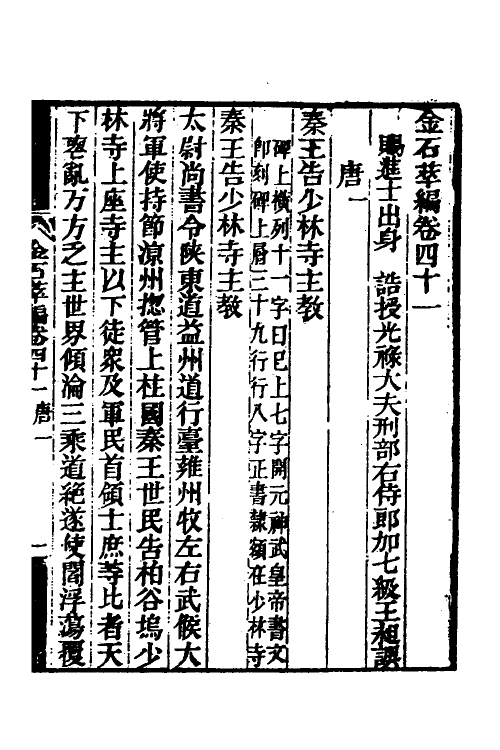 金石萃編卷四十一
賜進士出身 誥授光祿大夫刑部右侍郎加七級王昶譔
唐一
秦王告少林寺主教
碑上橫列十一字曰巳上七字開元神武皇帝書文
卽刻碑上層三十九行行八字正書隸額在少林寺
秦王告少林寺主教
太尉尚書令陝東道益州道行臺雍州牧左右武候大
將軍使持節涼州揔管上柱國秦王世民告柏谷塢少
林寺上座寺主以下徒衆及軍民首領士庶等比者天
下喪亂万方乏主世界傾淪三乘道絕遂使閻浮蕩覆
金石萃編卷四十一 唐一 一